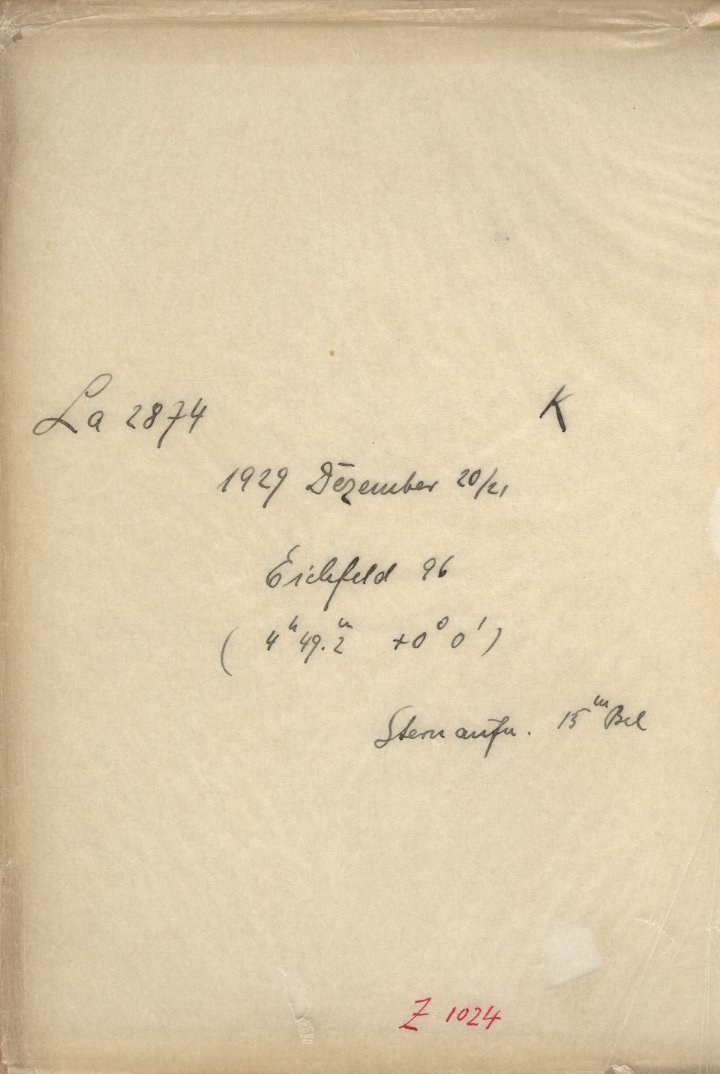 La 2874 K
1929 Dezember 20/21
Eichfeld 96
( 4ʰ 49.2ᵐ +0° 0' )
Sternaufn. 15ᵐ Bel
Z 1024